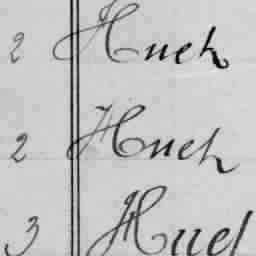 2 Huch
2 Huch
3 Huel